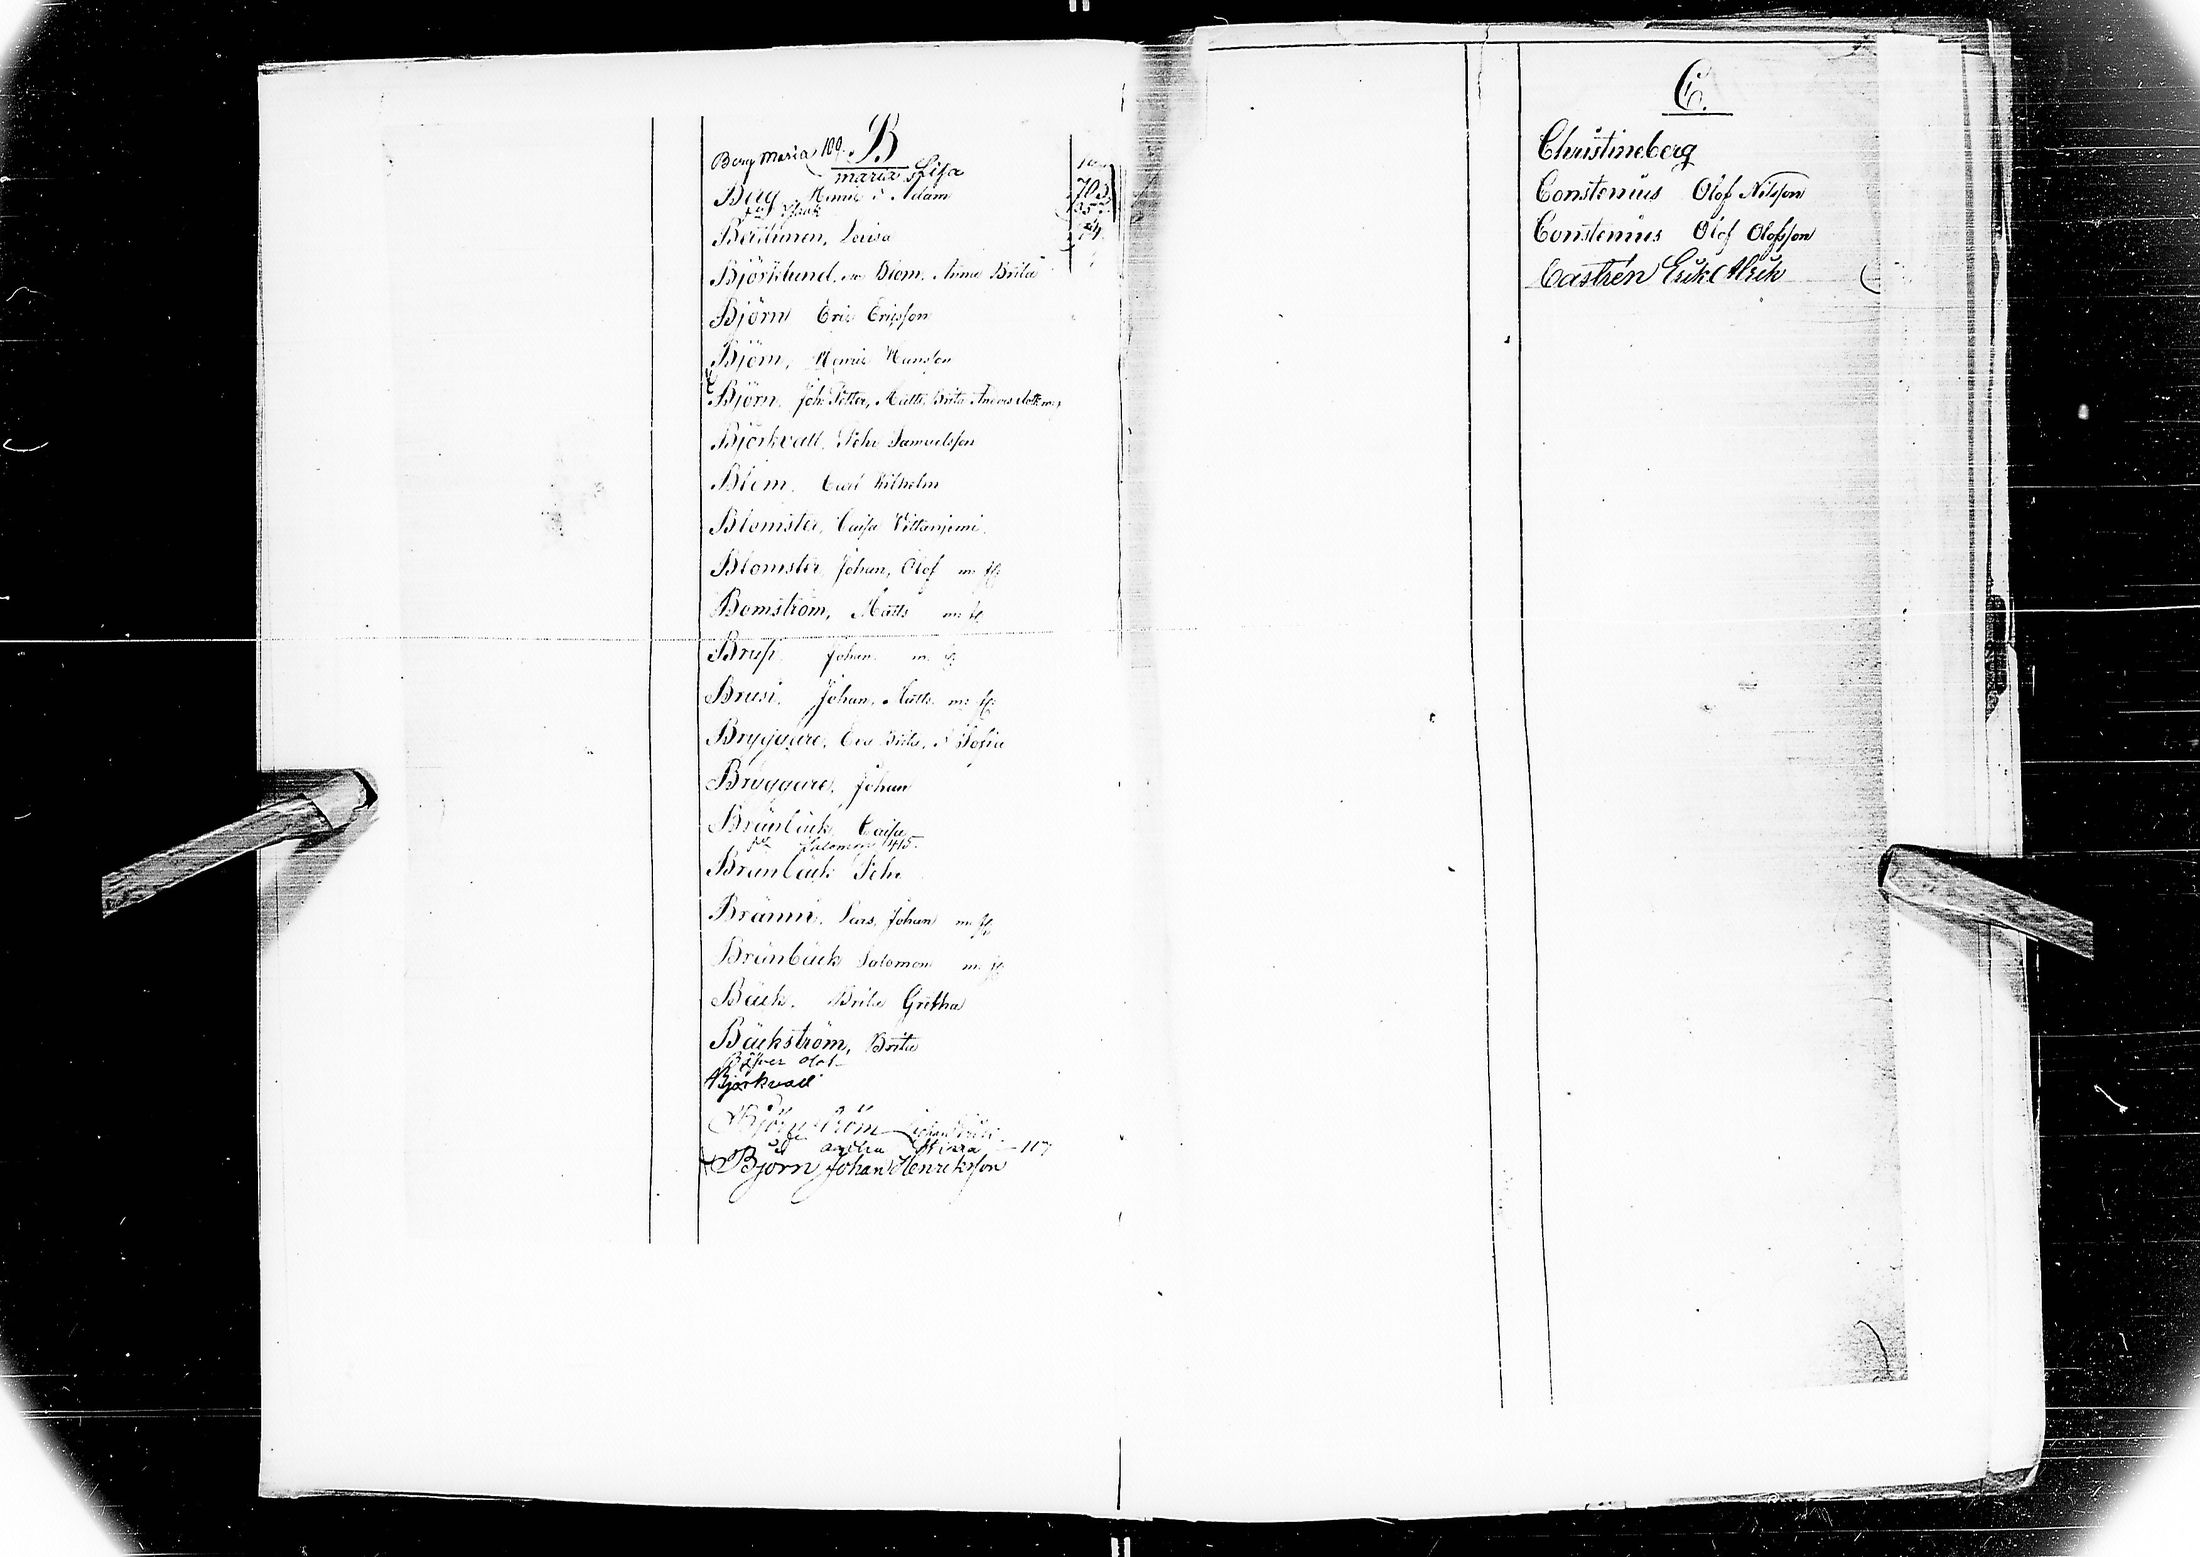 B
Berg Maria 109.
Maria Lisa
Berg Henric & Adam
Isak
Berttunen, Lovisa
Björklund, Blom. Anna Brita
Björn Eric Ericsson
Björn, Henric Hansson
Björn. Joh: Petter, Matts, Brita
Björkvall, Joh: Samuelsson
Blom. Carl Wilhelm
Blomster, Caisa
Blomster Johan, Olof m: fl:
Bomström, Matts m: fl:
Brusi. Johan m: fl:
Brusi. Johan, Matts. m: fl:
Bryggare, Eva Brita, & Sofia
Bryggare, Johan
Bränbäck, Caisa
Salomon 415
Bränbäck Joh:
Bränni. Lars, Johan m: fl:
Bränbäck Salomon m: fl:
Bäck. Brita Gretha
Bäckström, Brita
Olof
Björkvall
Björnström
Stina 117
Björn Johan Henriksson
C.
Christineberg
Constenius Olof Nilsson
Constenius Olof Olofsson
Castrén Erik Ulrik